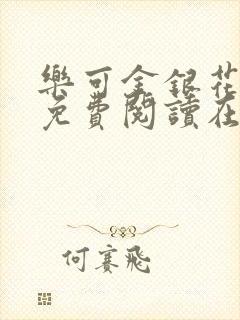 樂可金銀花
免費閱讀在
何賽飛